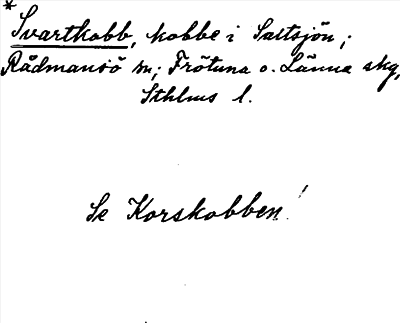 *
Svartkobb, kobbe i Saltsjön;
Rådmansö sn; Frötuna o. Länna skg,
Sthlms l.
Se Korskobben!